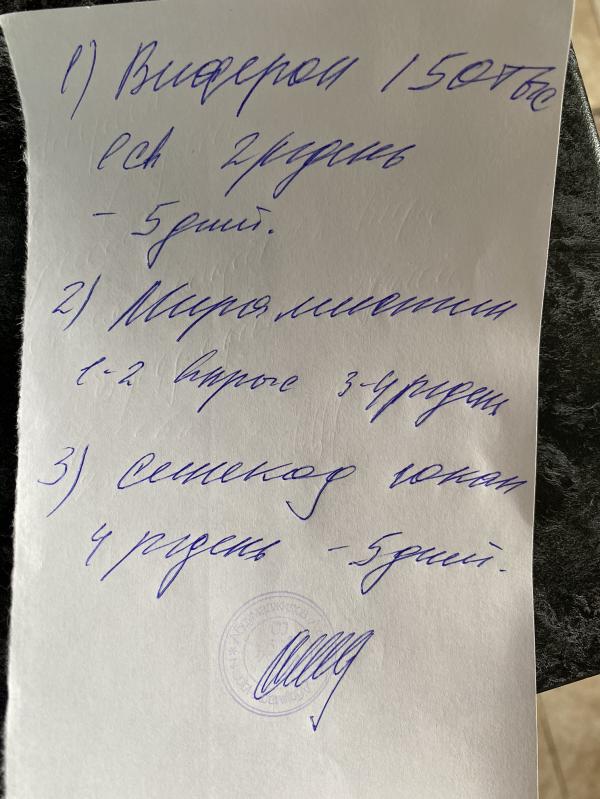 1) Виферон 150 тыс
1 св 2 р/день
- 5 дней.
2) Мирамистин
1-2 впрыс 3-4 р/день
3) Синекод 10кап
4 р/день - 5 дней.